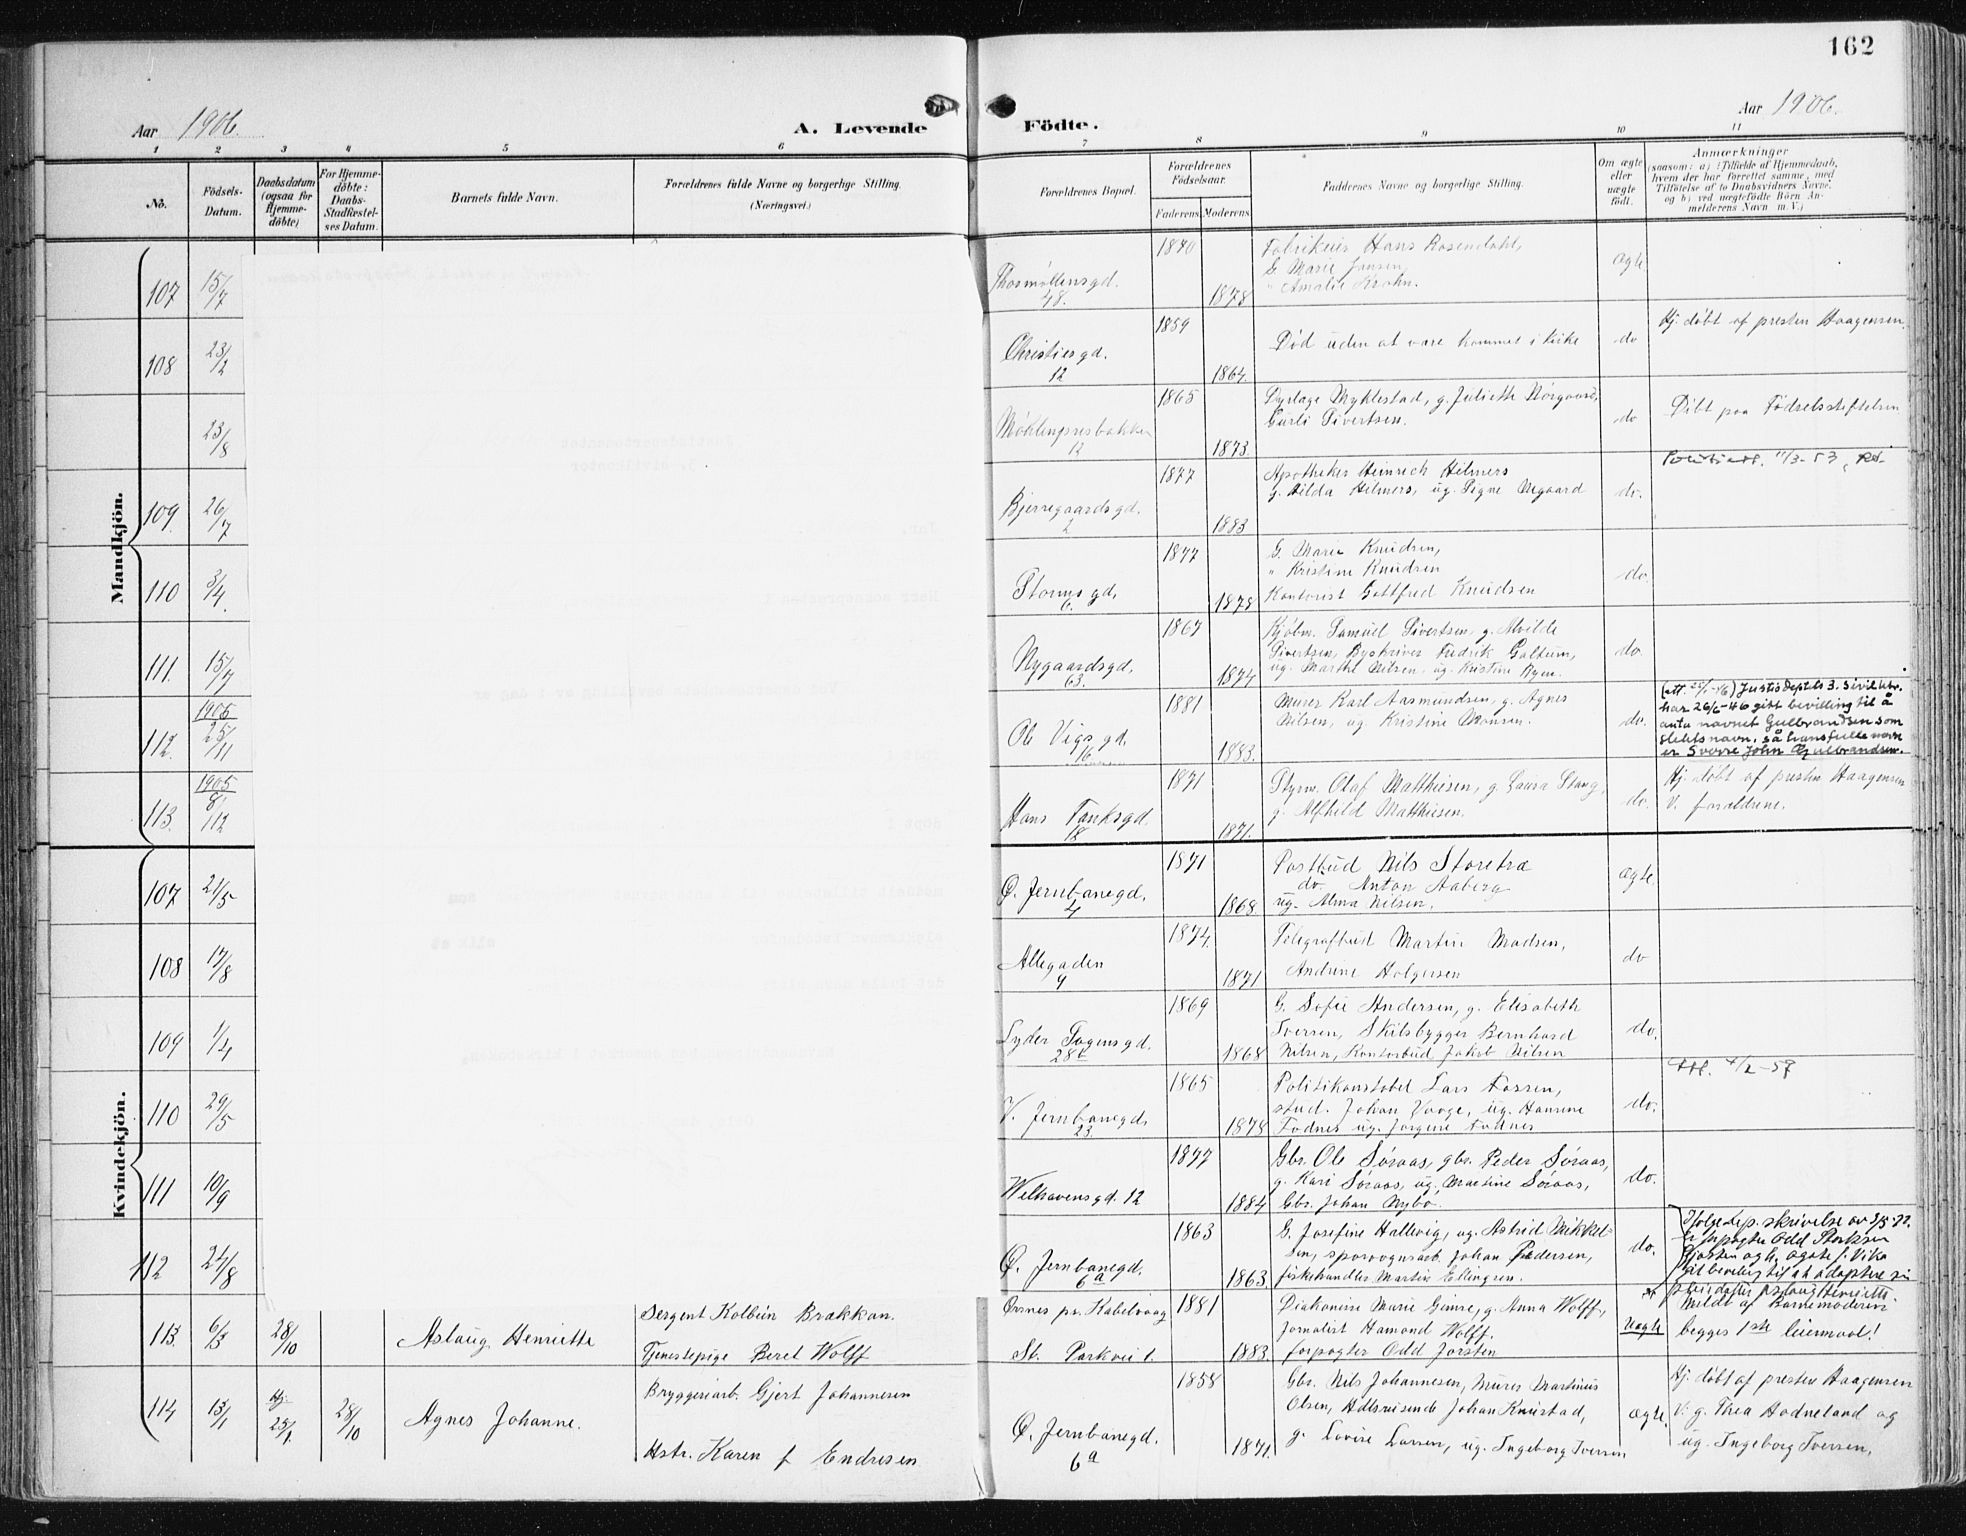 162
Aar 1906.
A. Levende Födte.
Aar 1906.
1 2 3 4 5 6 7 8 9 10 11
No.
Födsels-
Datum.
Daabsdatum
(ogsaa for
Hjemme-
döbte)
For Hjemme-
döbte:
Daabs-
Stadfæstel-
ses Datum.
Barnets fulde Navn.
Forældrenes fulde Navne og borgerlige Stilling.
(Næringsvei.)
Forældrenes Bopæl.
Forældrenes
Födselsaar.
Faderens Moderens
Faddernes Navne og borgerlige Stilling.
Om ægte
eller
uægte
födt.
Anmærkninger
(saasom: a) i Tilfælde af Hjemmedaab,
hvem der har forrettet samme, med
Tilföielse af to Daabsvidners Navne.
og b) ved uægtefödte Börn An-
melderens Navn m. V.)
Mandkjön.
107 15/7
Thormøllensgd. 48.
1870 1878
Fabrikeier Hans Rosendahl,
G. Marie Jansen
" Amalie Krohn.
ægte
108 23/2
Christiesgd. 12
1859 1864.
Død uden at være kommet i kirke
do
Hj. døbt af presten Haagensen.
23/8
Møhlenprisbakken 12
1865 1873.
Myklestad, g. Juliette Nørgaard,
Sivertsen.
do
Døbt paa Fødselsstiftelsen
109. 26/7
Bjerregaardsgd. 2
1877 1883
Apotheker Heinrich Hilmers
g. Hilda Hilmers, ug. Signe Uegaard
do.
11/3-53,
110 3/4.
Stormsgd. 6.
1877 1878
G. Marie Knudsen,
" Kristine Knudsen
Kontorist Gottfred Knudsen
do.
111. 15/7
Nygaardsgd. 63.
1867 1874
Kjøbm. Samuel Sivertsen, g. Alvilde
Sivertsen, Byskriver Fredrik Galtung,
ug. Marthe Nilsen, ug. Kristine Ryen.
do
112. 1905 25/11
Ole Vigsgd. 16
1881 1883.
Murer Karl Aasmundsen, g. Agnes
Nilsen, ug. Kristine Monsen.
do.
Justisdeptets 3. sivilktr.
har 26/6-46 gitt bevilling til å
anta navnet Gulbrandsen som
slektsnavn, så hans fulle navn
er Sverre John Gulbrandsen.
113. 1905 8/12
Hans Tanksgd. 18
1871 1871.
Styrm. Olaf Matthiesen, g. Laura Stang,
g. Alfhild Matthiesen.
do.
Hj. døbt af presten Haagensen
V. forældrene.
Kvindekjön.
107 21/5
Ø. Jernbanegd. 4
1871 1868
Postbud Nils Storetræ
do. Anton Aaberg
ug. Alma Nilsen.
ægte.
108 17/8
Allegaden 9
1874. 1871
Telegrafbud Martin Madsen,
Andrine Holgersen
do
109 1/4
Lyder Sagensgd. 28b
1869 1868
G. Sofie Andersen, g. Elisabeth
Iversen, Skibsbygger Bernhard
Nilsen, Kontorbud Jakob Nilsen
do.
110 29/5
V. Jernbanegd. 23.
1865 1878
Politikonstabel Lars Fossen,
stud. Johan Vaage, ug. Hansine
Fodnes ug. Jørgine Fodnes
do.
Att. 4/2-57
111 10/9
Welhavensgd. 12
1877 1884
Gbr. Ole Søraas, gbr. Peder Søraas,
g. Kari Søraas, ug. Martine Søraas,
Gbr. Johan Nybø.
do.
112 24/8
Ø. Jernbanegd. 6a
1863 1863
G. Josefine Hallvig, ug. Astrid Mikkel-
sen, sporvognsarb. Johan Pedersen,
fiskehandler Martin Ellingsen.
do.
Ifølge dep. skrivelse av 3/5-22
er forpagter Odd Storksen
Hjorsten og h. ægte f. Vika
gitt bevilling til at adoptere sin
pleiedatter Aslaug Henriette.
113. 6/3 28/10
Aslaug Henriette
Sergent Kolbein Brækkan.
Tjenestepige Beret Wolff
Ørsnes pr. Kabelvaag
St. Parkvei 1.
1881 1883.
Diakonisse Marie Gimre, g. Anna Wolff,
Jornalist Hamond Wolff.
forpagter Odd Jorsten
Uægte
Meldt af Barnemoderen
begges 1ste leiermaal!
114 13/1 Hj. 25/1. 28/10
Agnes Johanne.
Bryggeriarb. Gjert Johannesen
Hstr. Karen f. Endresen
Ø. Jernbanegd. 6a
1858 1871.
Gbr. Nils Johannesen, Murer Martinus
Olsen, Hdlsreisende Johan Knustad,
g. Lovise Larsen, ug. Ingeborg Iversen
ægte.
Hj. døbt af presten Haagensen
V. g. Thea Hodneland og
ug. Ingeborg Iversen,